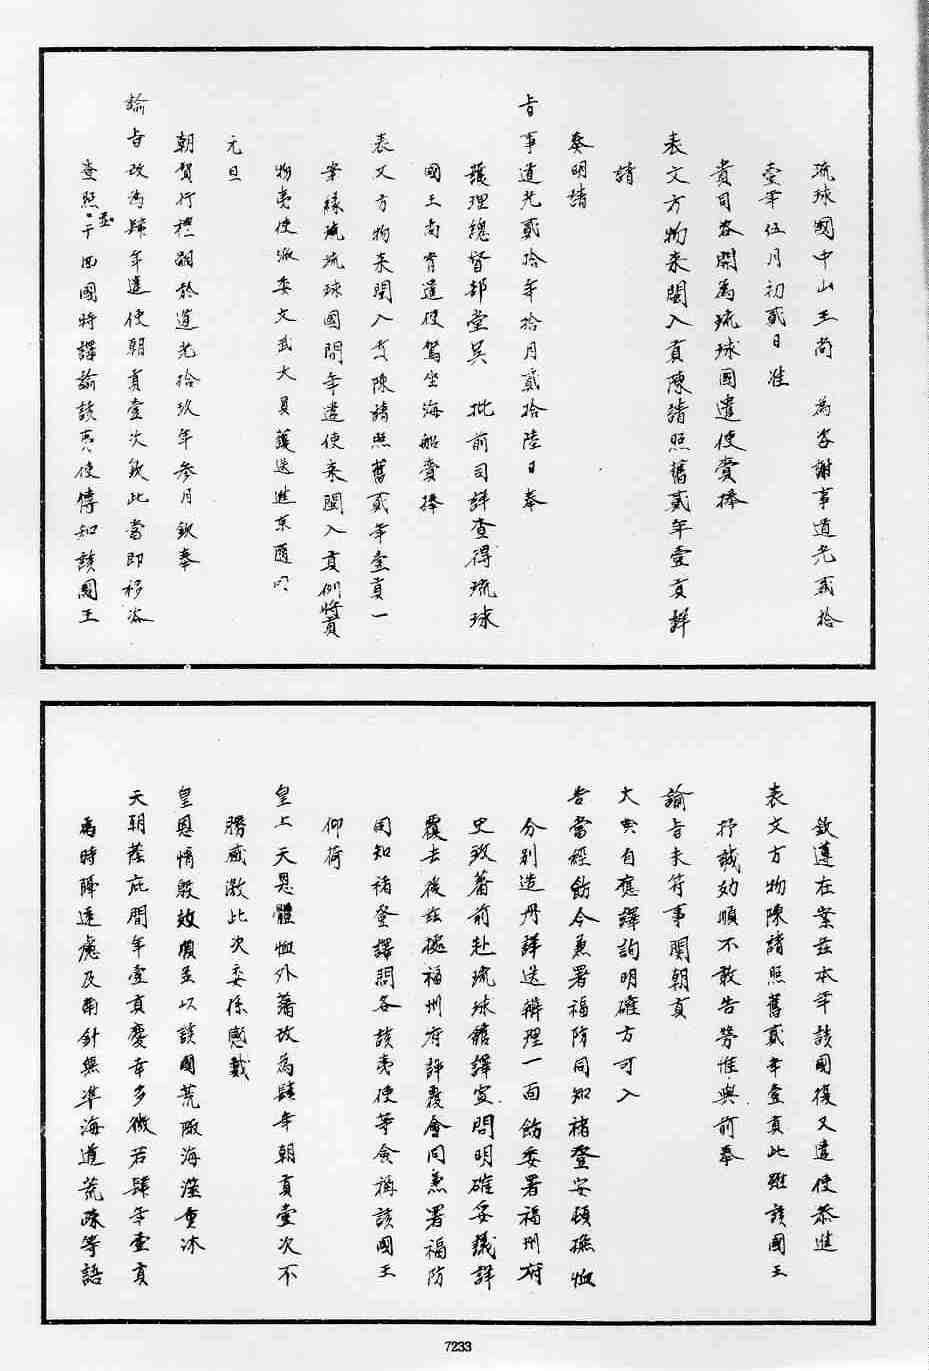 琉球國中山王尚　為咨謝事道光貳拾
壹年伍月初貳日准
貴司咨開為琉球國遣使賫捧
表文方物來閩入貢陳請照舊貳年壹貢詳
請
奏明請
旨事道光貳拾年拾月貳拾陸日奉
護理總督部堂吳　批前司詳查得琉球
國王尚育遣使駕坐海船賫捧
表文方物來閩入貢陳請照舊貳年壹貢一
案緣琉球國間年遣使來閩入貢例將貢
物夷使派委文武大員護送進京
元旦
朝賀行禮嗣於道光拾玖年參月欽奉
諭旨改為肆年遣使朝貢壹次欽此當即移咨
查照並于回國時譯諭該夷使傳知該國王
欽遵在案茲本年該國復又遣使恭進
表文方物陳請照舊貳年壹貢此雖該國王
抒誠効順不敢告勞惟與前奉
諭旨未符事關朝貢
大典自應譯詢明確方可入
告當經飭令兼署福防同知褚登安頓撫恤
分別造冊詳送辦理一面飭委署福州府
史致蕃前赴琉球館譯宣問明確妥議詳
覆去後茲據福州府詳覆會同兼署福防
同知褚登譯問各該夷使等僉稱該國王
仰荷
皇上天恩體恤外藩改為肆年朝貢壹次不
勝感激此次委係感戴
皇恩情殷效順並以該國荒陬海澨重沐
天朝蔭庇間年壹貢慶幸多徵若肆年壹貢
為時隔遠慮及南針無準海道荒疎等語
7233